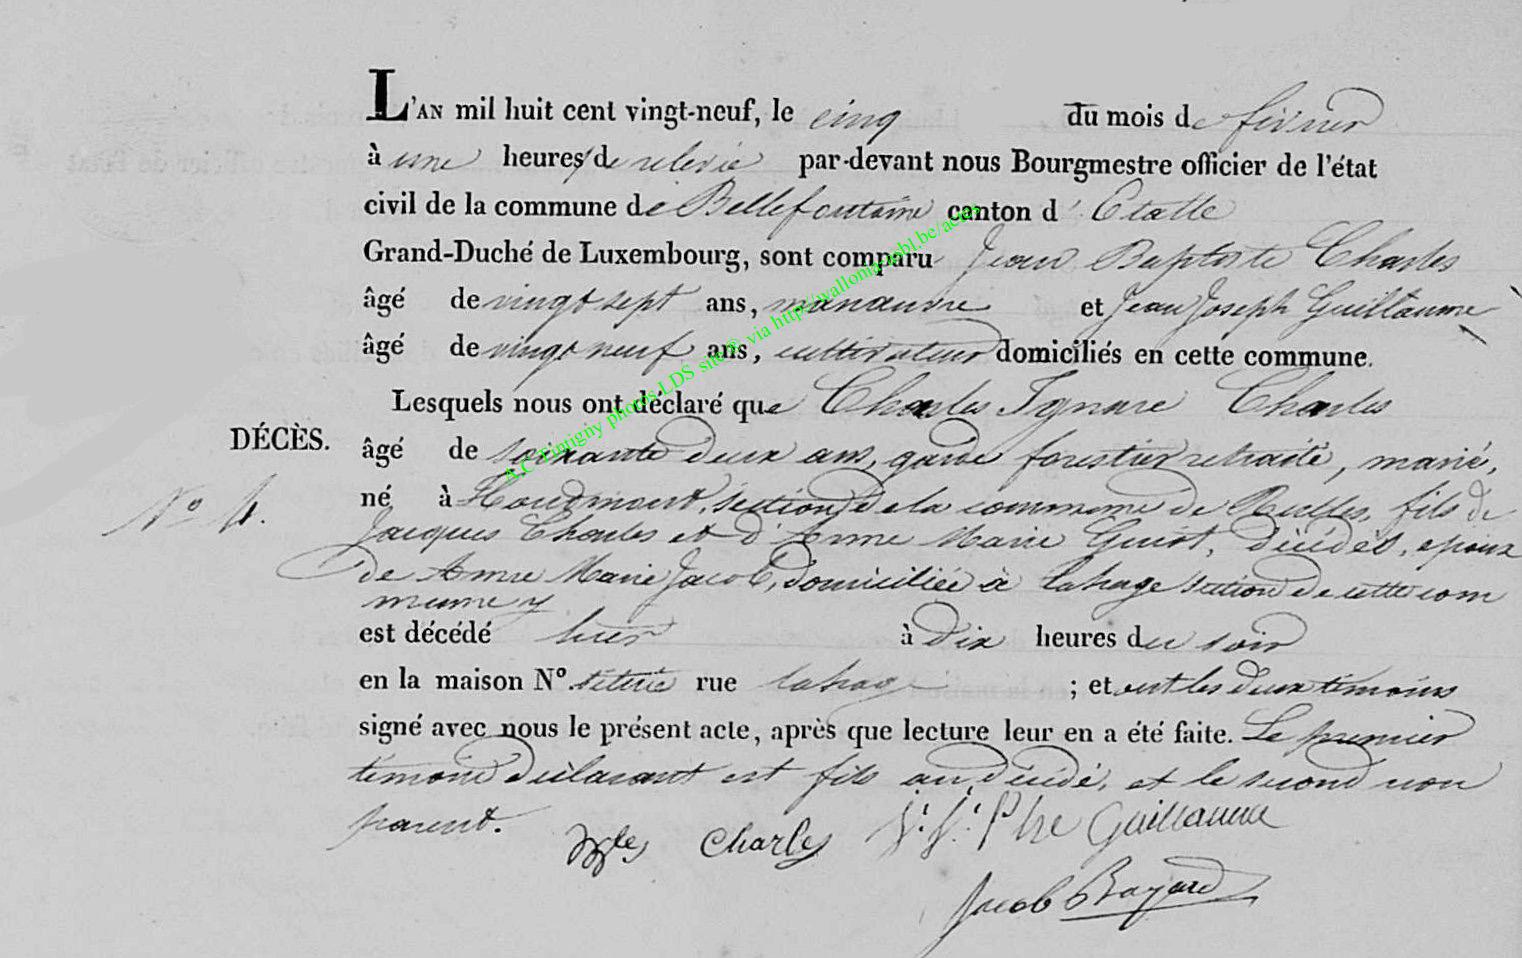 L'AN mil huit cent vingt-neuf, le cinq du mois de février
à une heures de relevée par-devant nous Bourgmestre officier de l'état
civil de la commune de Bellefontaine canton d' Etalle
Grand-Duché de Luxembourg, sont comparu Jean Baptiste Charles
âgé de vingt sept ans, manœuvre et Jean Joseph Guillaume
âgé de vingt neuf ans, cultivateur domiciliés en cette commune.
Lesquels nous ont déclaré que Charles Ignace Charles
DÉCÈS.
âgé de soixante deux ans, garde forestier retraité, marié,
No 4.
né à Houdrimont, section de la commune de Rulles, fils de
Jacques Charles et d'Anne Marie Guiot, décédés, epoux
de Anne Marie Jacob, domiciliée à Lahage section de cette com
mune
est décédé hier à dix heures du soir
en la maison No. rue Lahage ; et ont les deux témoins
signé avec nous le présent acte, après que lecture leur en a été faite. Le premier
témoin déclarant est fils au décédé, et le second non
parent.
Charles J. J. Guillaume
Jacob Bayard
A.C. Tintigny photos LDS site® via http://wallonia-asbl.be/actes